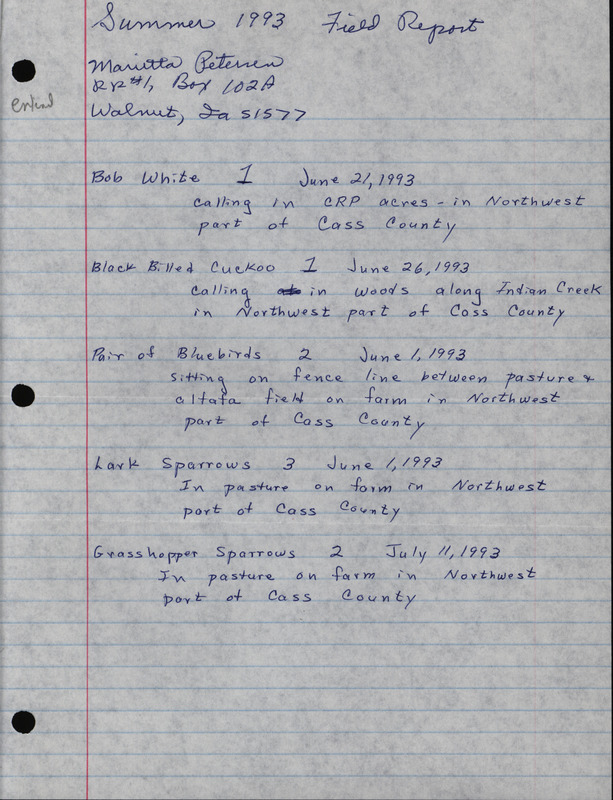 Summer 1993 Field Report
Marietta Petersen
RR #1, Box 102A
Walnut, Ia 51577
Bob White 1 June 21, 1993
calling in CRP acres - in Northwest
part of Cass County
Black Billed Cuckoo 1 June 26, 1993
calling in woods along Indian Creek
in Northwest part of Cass County
Pair of Bluebirds 2 June 1, 1993
sitting on fence line between pasture &
alfafa field on farm in Northwest
part of Cass County
Lark Sparrows 3 June 1, 1993
In pasture on farm in Northwest
part of Cass County
Grasshopper Sparrows 2 July 11, 1993
In pasture on farm in Northwest
part of Cass County